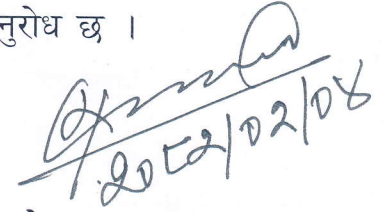 नुरोध छ ।
२०८२।०२।०४